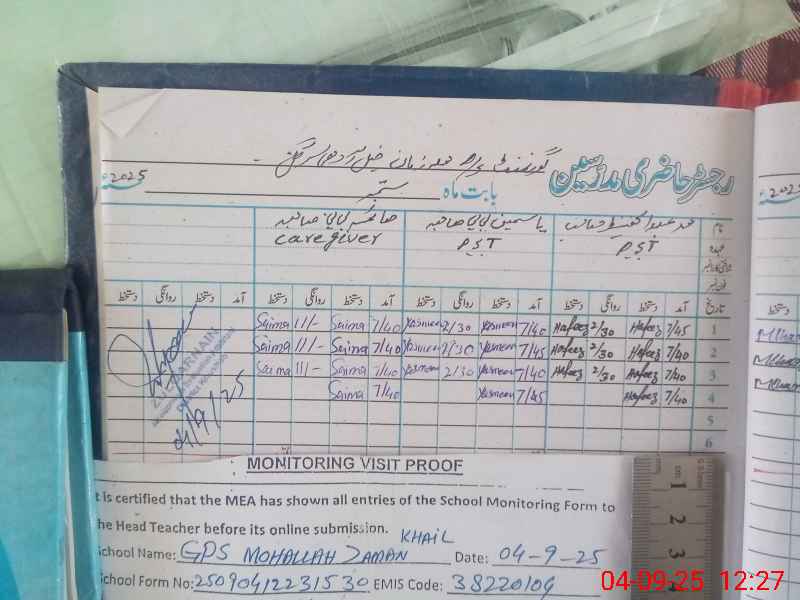 رجسٹر حاضری مدرسین گورنمنٹ
2025 بابت ماہ ستمبر
نام محمد عبدالحفیظ صاحب یاسمین بی بی صاحبہ صائمہ بی بی صاحبہ
عہدہ PST PST caregiver
تاریخ آمد دستخط روانگی دستخط آمد دستخط روانگی دستخط آمد دستخط روانگی دستخط آمد دستخط روانگی دستخط
1 7/45 Hafeez 2/30 Hafeez 7/40 Yasmeen 2/30 Yasmeen 7/40 Saima 11/- Saima
2 7/40 Hafeez 2/30 Hafeez 7/45 Yasmeen 2/30 Yasmeen 7/40 Saima 11/- Saima
3 7/40 Hafeez 2/30 Hafeez 7/40 Yasmeen 2/30 Yasmeen 7/40 Saima 11/- Saima
4 7/40 Hafeez 7/45 Yasmeen 7/40 Saima
5
6
04/9/25
MONITORING VISIT PROOF
t is certified that the MEA has shown all entries of the School Monitoring Form to
he Head Teacher before its online submission.
School Name: GPS MOHALLAH ZAMAN KHAIL Date: 04-9-25
School Form No: 25090412231530 EMIS Code: 38220104
cm 1 2 3
04-09-25 12:27